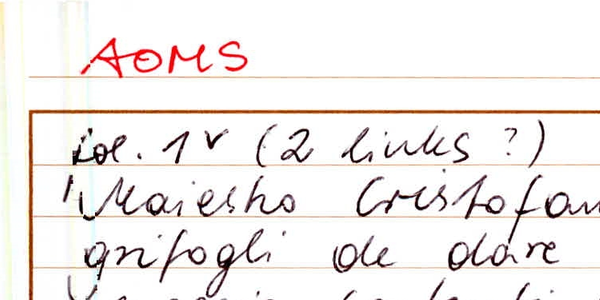 AOMS
fol. 1v (2 links?)
"Maiestro Cristofan
grifogli de dare